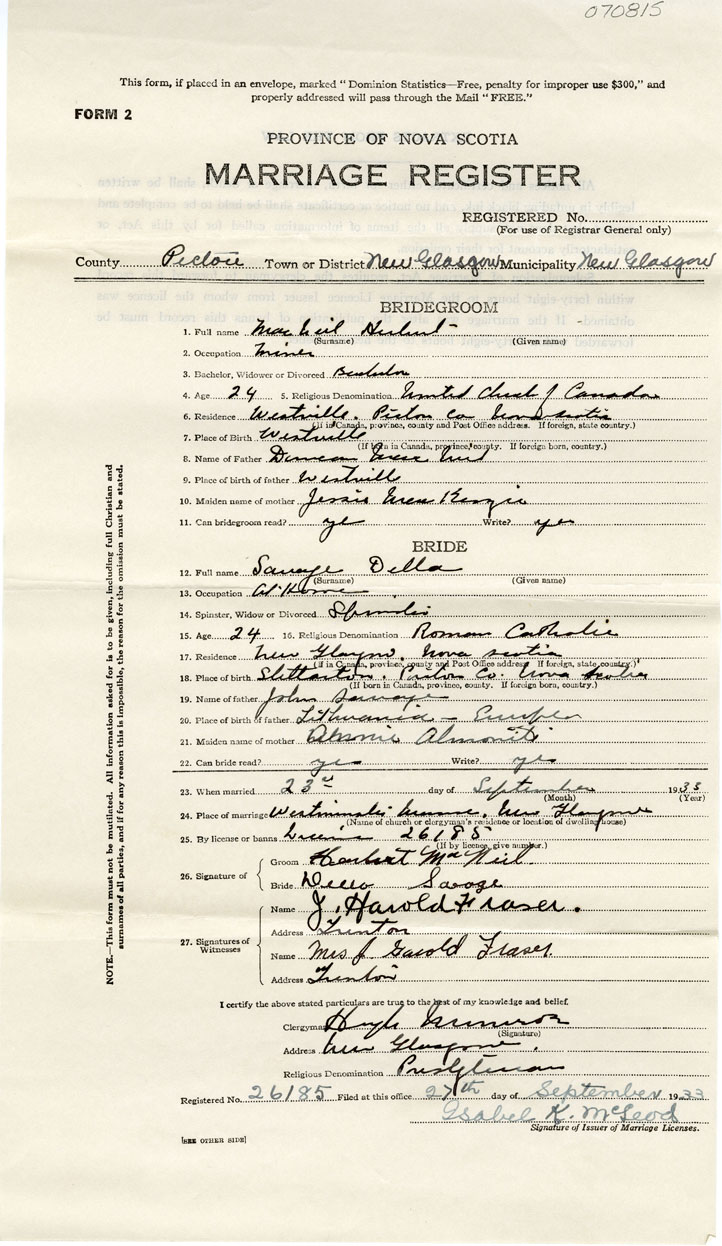 070815
This form, if placed in an envelope, marked "Dominion Statistics—Free, penalty for improper use $300," and
properly addressed will pass through the Mail "FREE."
FORM 2
PROVINCE OF NOVA SCOTIA
MARRIAGE REGISTER
REGISTERED No.
(For use of Registrar General only)
County Pictou Town or District New Glasgow Municipality New Glasgow
BRIDEGROOM
1. Full name MacNeil Herbert
(Surname) (Given name)
2. Occupation Miner
3. Bachelor, Widower or Divorced Bachelor
4. Age 24 5. Religious Denomination United Church of Canada
6. Residence Westville, Pictou Co Nova Scotia
(If in Canada, province, county and Post Office address. If foreign, state country.)
7. Place of Birth Westville
(If born in Canada, province, county. If foreign born, country.)
8. Name of Father Duncan MacNeil
9. Place of birth of father Westville
10. Maiden name of mother Jessie MacKenzie
11. Can bridegroom read? yes Write? yes
BRIDE
12. Full name Savage Della
(Surname) (Given name)
13. Occupation At Home
14. Spinster, Widow or Divorced Spinster
15. Age 24 16. Religious Denomination Roman Catholic
17. Residence New Glasgow, Nova Scotia
(If in Canada, province, county and Post Office address. If foreign, state country.)
18. Place of birth Stellarton, Pictou Co. Nova Scotia
(If born in Canada, province, county. If foreign born, country.)
19. Name of father John Savage
20. Place of birth of father Lithuania – Europe
21. Maiden name of mother
22. Can bride read? yes Write? yes
23. When married 23rd day of September 1933
(Month) (Year)
24. Place of marriage Westminster Manse, New Glasgow
(Name of church or clergyman's residence or location of dwelling house)
25. By license or banns License 26185
(If by licence, give number.)
26. Signature of
Groom Herbert MacNeil.
Bride Della Savage
27. Signatures of Witnesses
Name J. Harold Fraser.
Address Trenton
Name Mrs J Harold Fraser.
Address Trenton
I certify the above stated particulars are true to the best of my knowledge and belief.
Clergyman Hugh Munroe
(Signature)
Address New Glasgow.
Religious Denomination Presbyterian
Registered No. 26185 Filed at this office 27th day of September 1933
Isabel K. McLeod
Signature of Issuer of Marriage Licenses.
[SEE OTHER SIDE]
NOTE.—This form must not be mutilated. All information asked for is to be given, including full Christian and
surnames of all parties, and if for any reason this is impossible, the reason for the omission must be stated.